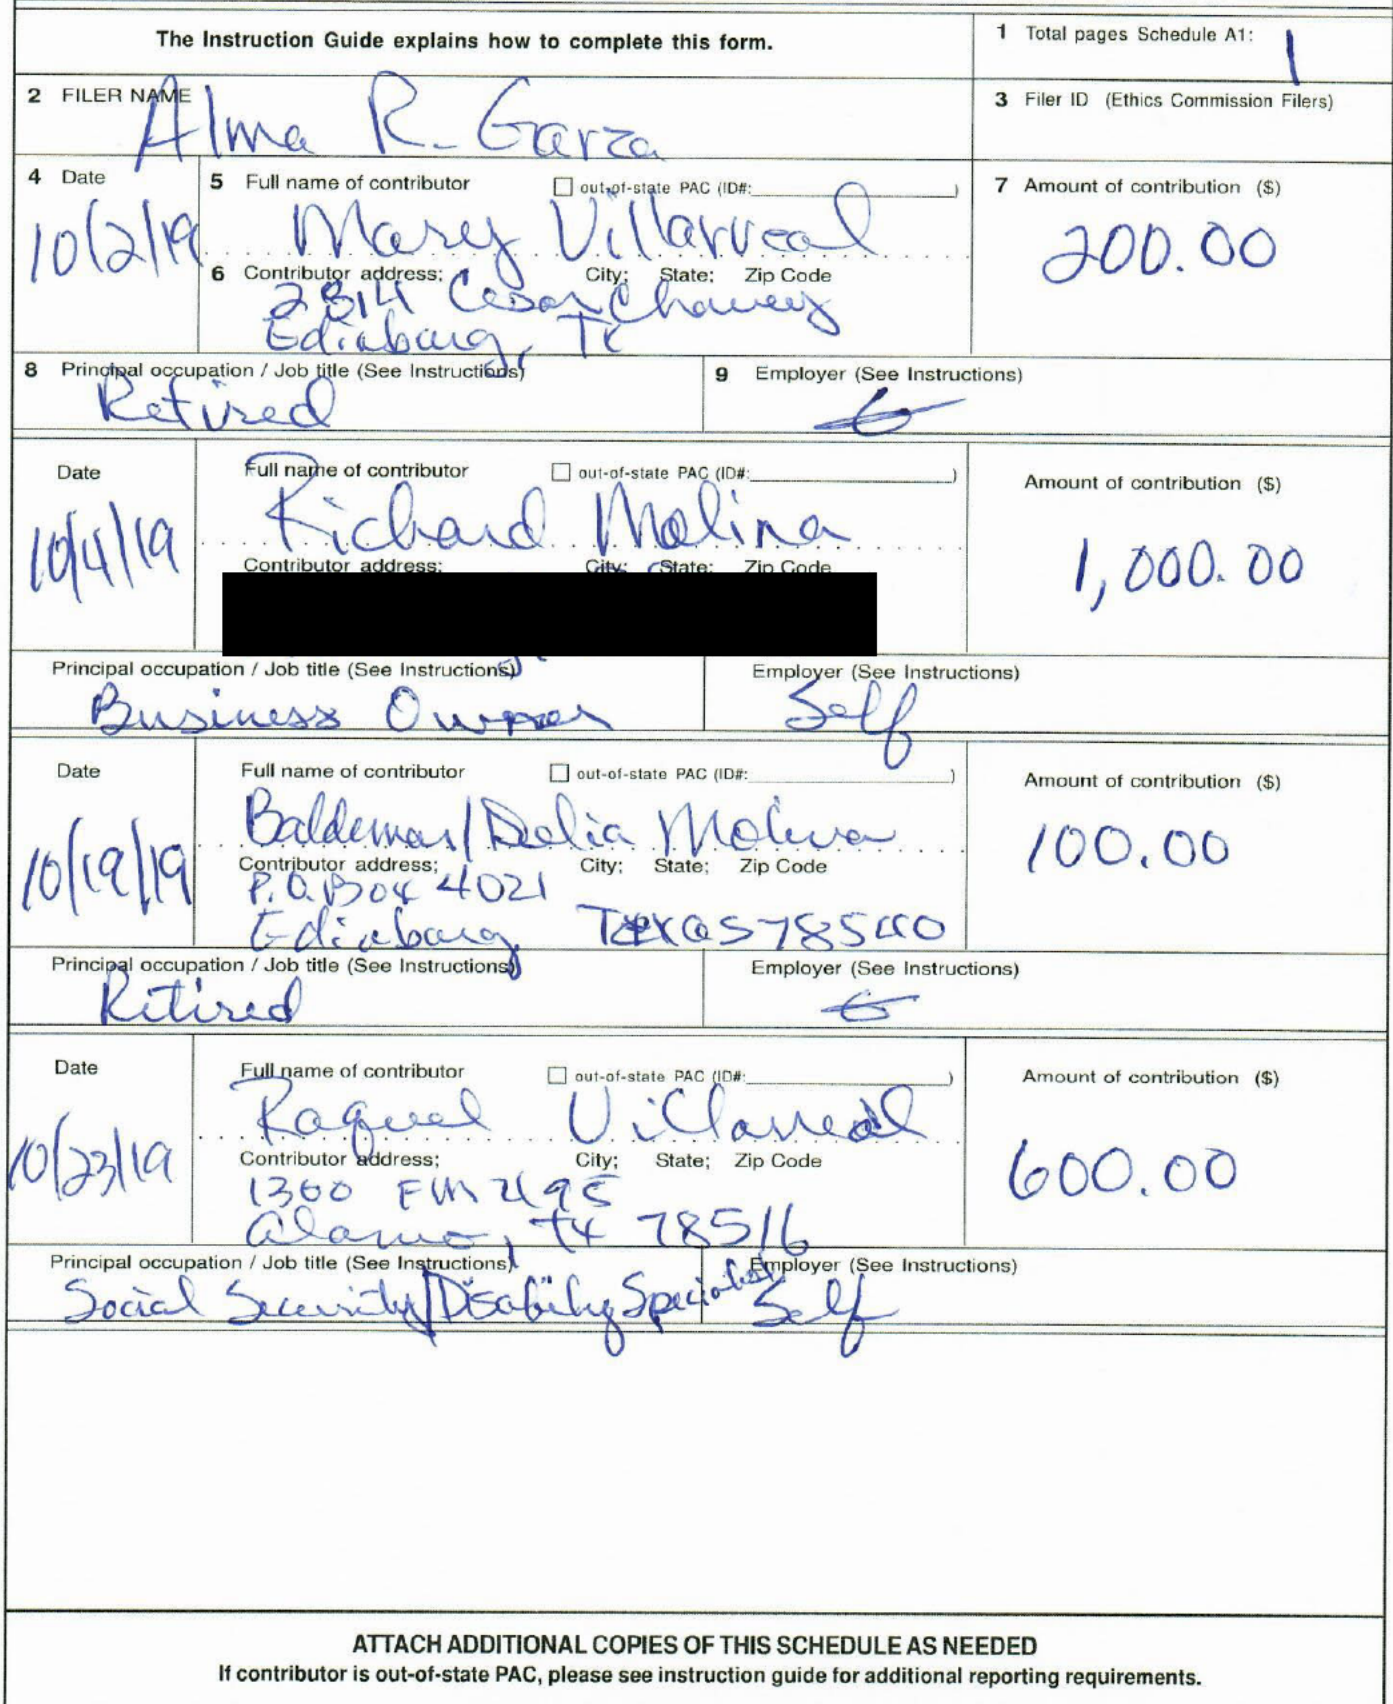 The Instruction Guide explains how to complete this form.
1 Total pages Schedule A1: 1
2 FILER NAME
Alma R. Garza
3 Filer ID (Ethics Commission Filers)
4 Date
10/2/19
5 Full name of contributor
out-of-state PAC (ID#: )
Mary Villarreal
6 Contributor address; City; State; Zip Code
2314 Cesar Chavez
Edinburg, TX
7 Amount of contribution ($)
200.00
8 Principal occupation / Job title (See Instructions)
Retired
9 Employer (See Instructions)
Date
10/4/19
Full name of contributor
out-of-state PAC (ID#: )
Richard Molina
Contributor address; City; State; Zip Code
Amount of contribution ($)
1,000.00
Principal occupation / Job title (See Instructions)
Business Owner
Employer (See Instructions)
Self
Date
10/19/19
Full name of contributor
out-of-state PAC (ID#: )
Baldemar/Delia Molina
Contributor address; City; State; Zip Code
P.O. Box 4021
Edinburg Texas 78540
Amount of contribution ($)
100.00
Principal occupation / Job title (See Instructions)
Retired
Employer (See Instructions)
Date
10/23/19
Full name of contributor
out-of-state PAC (ID#: )
Raquel Villarreal
Contributor address; City; State; Zip Code
1360 FM 495
Alamo, TX 78516
Amount of contribution ($)
600.00
Principal occupation / Job title (See Instructions)
Social Security/Disability Specialist
Employer (See Instructions)
Self
ATTACH ADDITIONAL COPIES OF THIS SCHEDULE AS NEEDED
If contributor is out-of-state PAC, please see instruction guide for additional reporting requirements.